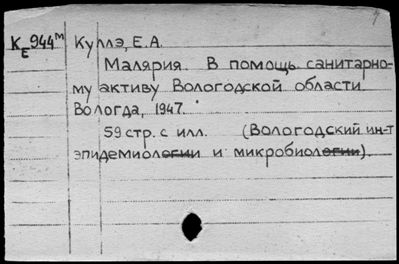 КЕ944м Куллэ, Е.А.
Малярия. В помощь санитарно-
му активу Вологодской области.
Вологда, 1947.
59 стр. с илл. (Вологодский ин-т
эпидемиологии и микробиологии).